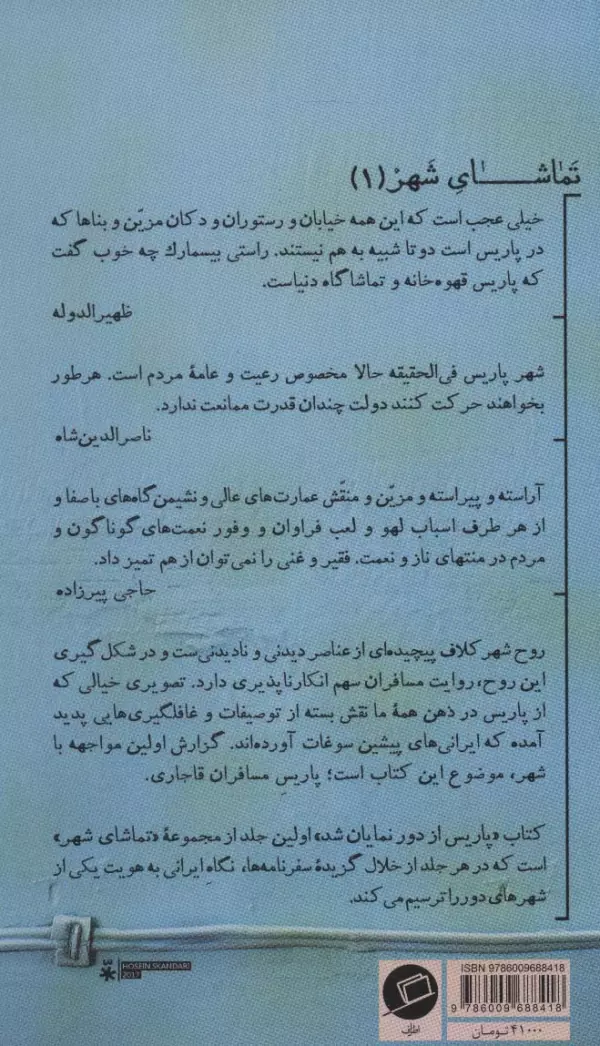 تماشای شهر (۱)
خیلی عجب است که این همه خیابان و رستوران و دکان مزیّن و بناها که
در پاریس است دو تا شبیه به هم نیستند. راستی بیسمارك چه خوب گفت
که پاریس قهوه‌خانه و تماشاگاه دنیاست.
ظهیرالدوله
شهر پاریس فی‌الحقیقه حالا مخصوص رعیت و عامۀ مردم است. هرطور
بخواهند حرکت کنند دولت چندان قدرت ممانعت ندارد.
ناصرالدین‌شاه
آراسته و پیراسته و مزیّن و منقّش عمارت‌های عالی و نشیمن‌گاه‌های باصفا و
از هر طرف اسباب لهو و لعب فراوان و وفور نعمت‌های گوناگون و
مردم در منتهای ناز و نعمت. فقیر و غنی را نمی‌توان از هم تمیز داد.
حاجی پیرزاده
روح شهر کلاف پیچیده‌ای از عناصر دیدنی و نادیدنی‌ست و در شکل‌گیری
این روح، روایت مسافران سهم انکارناپذیری دارد. تصویری خیالی که
از پاریس در ذهن همۀ ما نقش بسته از توصیفات و غافلگیری‌هایی پدید
آمده که ایرانی‌های پیشین سوغات آورده‌اند. گزارش اولین مواجهه با
شهر، موضوع این کتاب است؛ پاریسِ مسافران قاجاری.
کتاب «پاریس از دور نمایان شد» اولین جلد از مجموعۀ «تماشای شهر»
است که در هر جلد از خلال گزیدۀ سفرنامه‌ها، نگاهِ ایرانی به هویت یکی از
شهرهای دور را ترسیم می‌کند.
HOSEIN SKANDARI
2017
اطراف
ISBN 9786009688418
9 786009 688418
۴۱۰۰۰ تومان